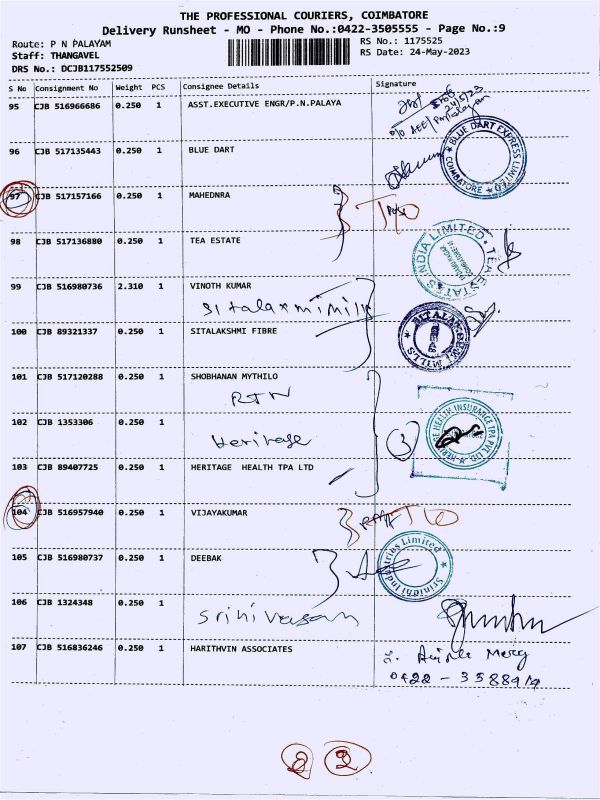 THE PROFESSIONAL COURIERS, COIMBATORE
Delivery Runsheet - MO - Phone No.:0422-3505555 - Page No.:9
Route: P N PALAYAM
RS No.: 1175525
Staff: THANGAVEL
RS Date: 24-May-2023
DRS No.: DCJB117552509
S No Consignment No Weight PCS Consignee Details Signature
95 CJB 516966686 0.250 1 ASST.EXECUTIVE ENGR/P.N.PALAYA
24/5/23
96 CJB 517135443 0.250 1 BLUE DART
BLUE DART EXPRESS LIMITED
COIMBATORE
97 CJB 517157166 0.250 1 MAHEDNRA
98 CJB 517136880 0.250 1 TEA ESTATE
TEA ESTATES INDIA LIMITED
99 CJB 516980736 2.310 1 VINOTH KUMAR
100 CJB 89321337 0.250 1 SITALAKSHMI FIBRE
MILLS
101 CJB 517120288 0.250 1 SHOBHANAN MYTHILO
RTN
102 CJB 1353306 0.250 1
Heritage
3
HERITAGE HEALTH INSURANCE TPA PVT. LTD
103 CJB 89407725 0.250 1 HERITAGE HEALTH TPA LTD
104 CJB 516957940 0.250 1 VIJAYAKUMAR
105 CJB 516980737 0.250 1 DEEBAK
Srinidhi Industries Limited
106 CJB 1324348 0.250 1
Srinivasan
107 CJB 516836246 0.250 1 HARITHVIN ASSOCIATES
Mercy